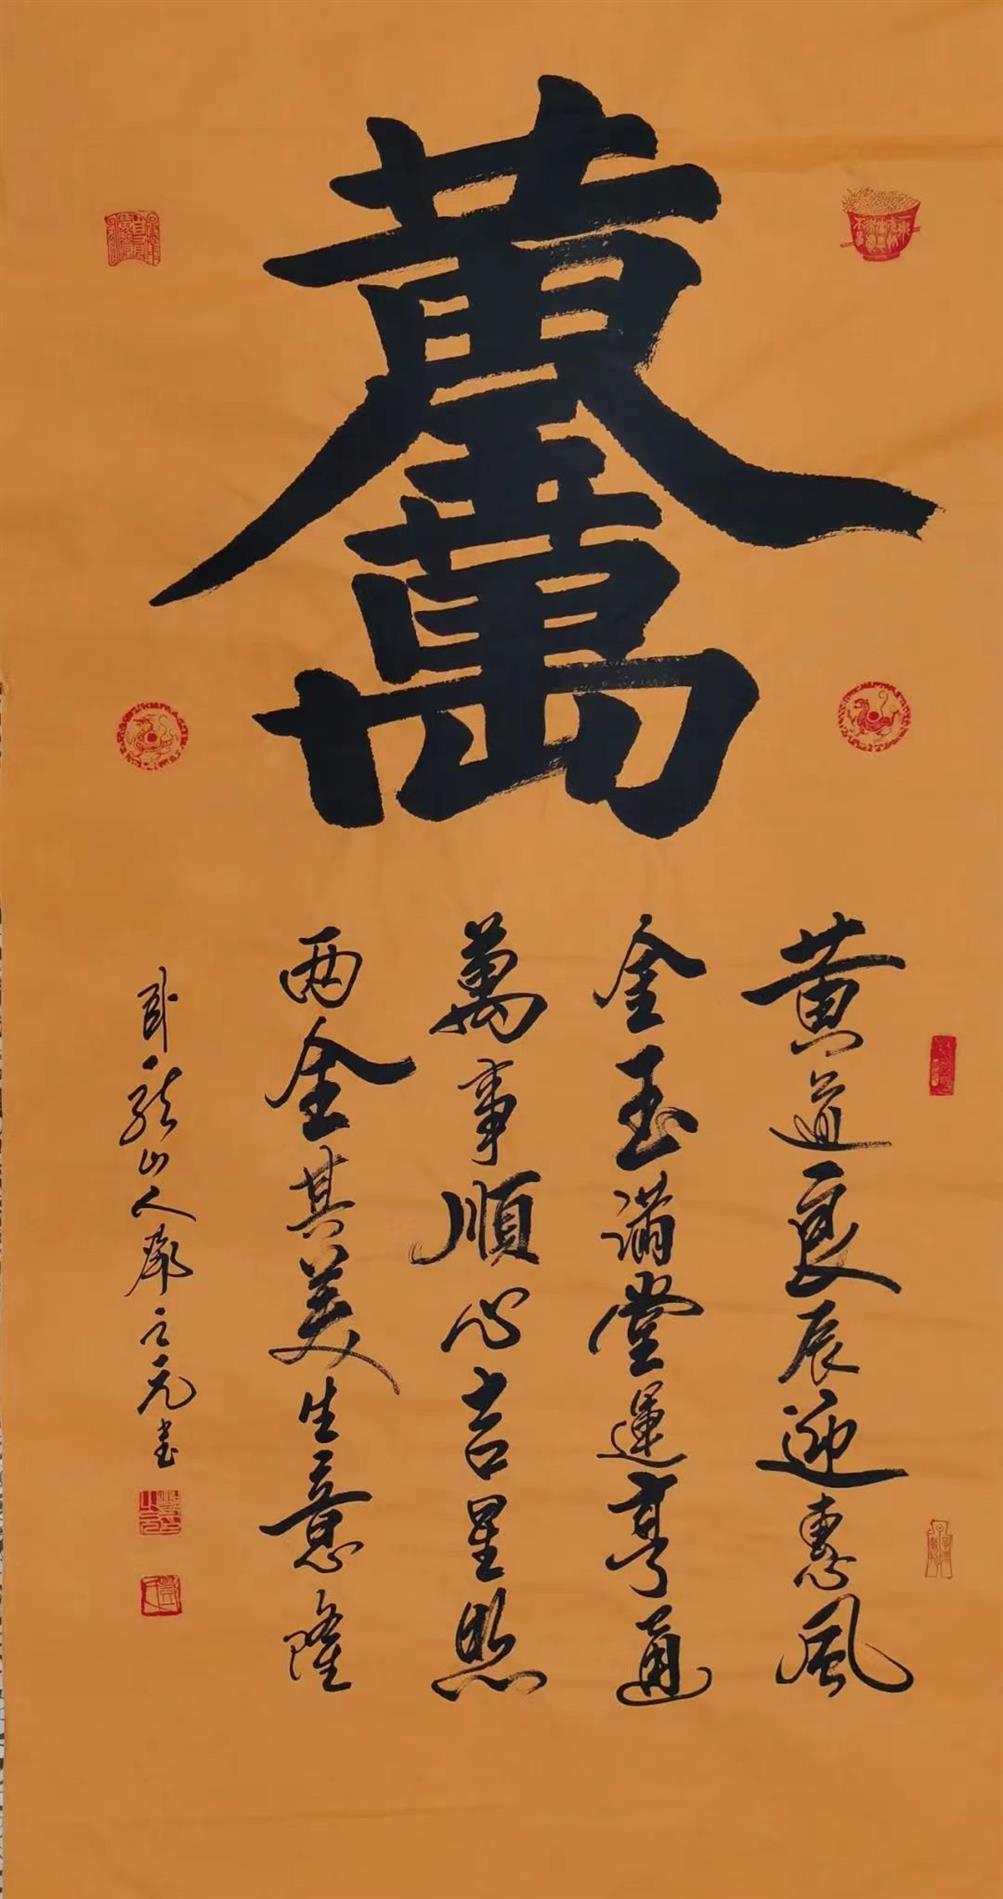 黄金萬兩
黄道良辰迎惠風
金玉滿堂運亨通
萬事順心吉星照
两全其美生意隆
卧龍山人之元書